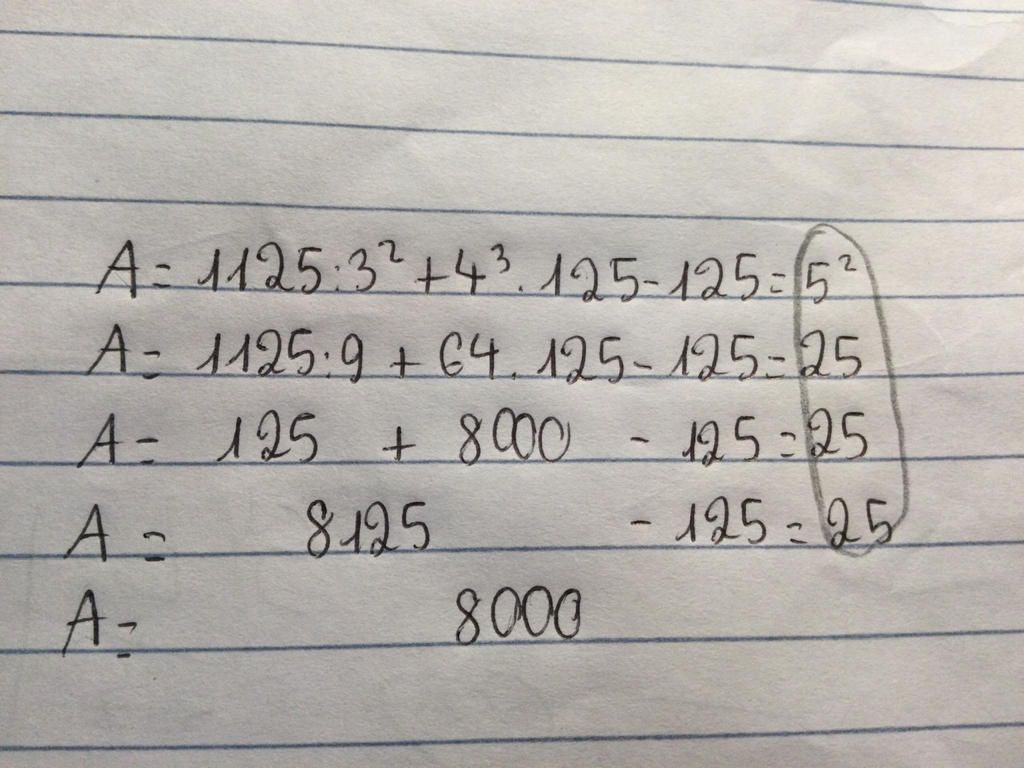 A = 1125:3² + 4³. 125 - 125 = 5²
A = 1125:9 + 64. 125 - 125 = 25
A = 125 + 8000 - 125 = 25
A = 8125 - 125 = 25
A = 8000